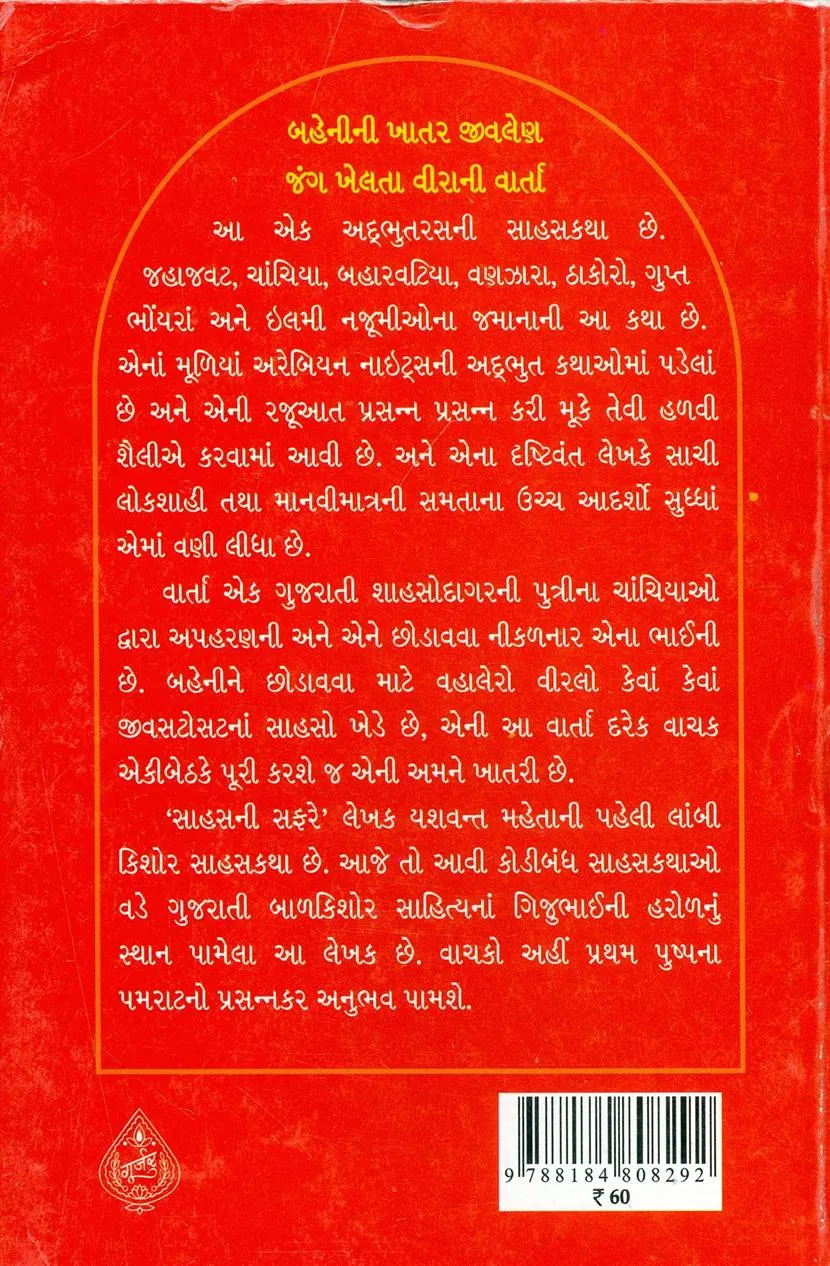 બહેનીની ખાતર જીવલેણ
જંગ ખેલતા વીરાની વાર્તા
આ એક અદ્ભુતરસની સાહસકથા છે.
જહાજવટ, ચાંચિયા, બહારવટિયા, વણઝારા, ઠાકોરો, ગુપ્ત
ભોંયરાં અને ઇલમી નજૂમીઓના જમાનાની આ કથા છે.
એનાં મૂળિયાં અરેબિયન નાઇટ્સની અદ્ભુત કથાઓમાં પડેલાં
છે અને એની રજૂઆત પ્રસન્ન પ્રસન્ન કરી મૂકે તેવી હળવી
શૈલીએ કરવામાં આવી છે. અને એના દૃષ્ટિવંત લેખકે સાચી
લોકશાહી તથા માનવીમાત્રની સમતાના ઉચ્ચ આદર્શો સુધ્ધાં
એમાં વણી લીધા છે.
વાર્તા એક ગુજરાતી શાહસોદાગરની પુત્રીના ચાંચિયાઓ
દ્વારા અપહરણની અને એને છોડાવવા નીકળનાર એના ભાઈની
છે. બહેનીને છોડાવવા માટે વહાલેરો વીરલો કેવાં કેવાં
જીવસટોસટનાં સાહસો ખેડે છે, એની આ વાર્તા દરેક વાચક
એકીબેઠકે પૂરી કરશે જ એની અમને ખાતરી છે.
‘સાહસની સફરે’ લેખક યશવન્ત મહેતાની પહેલી લાંબી
કિશોર સાહસકથા છે. આજે તો આવી કોડીબંધ સાહસકથાઓ
વડે ગુજરાતી બાળકિશોર સાહિત્યનાં ગિજુભાઈની હરોળનું
સ્થાન પામેલા આ લેખક છે. વાચકો અહીં પ્રથમ પુષ્પના
પમરાટનો પ્રસન્નકર અનુભવ પામશે.
ગૂર્જર
9 788184 808292
₹ 60